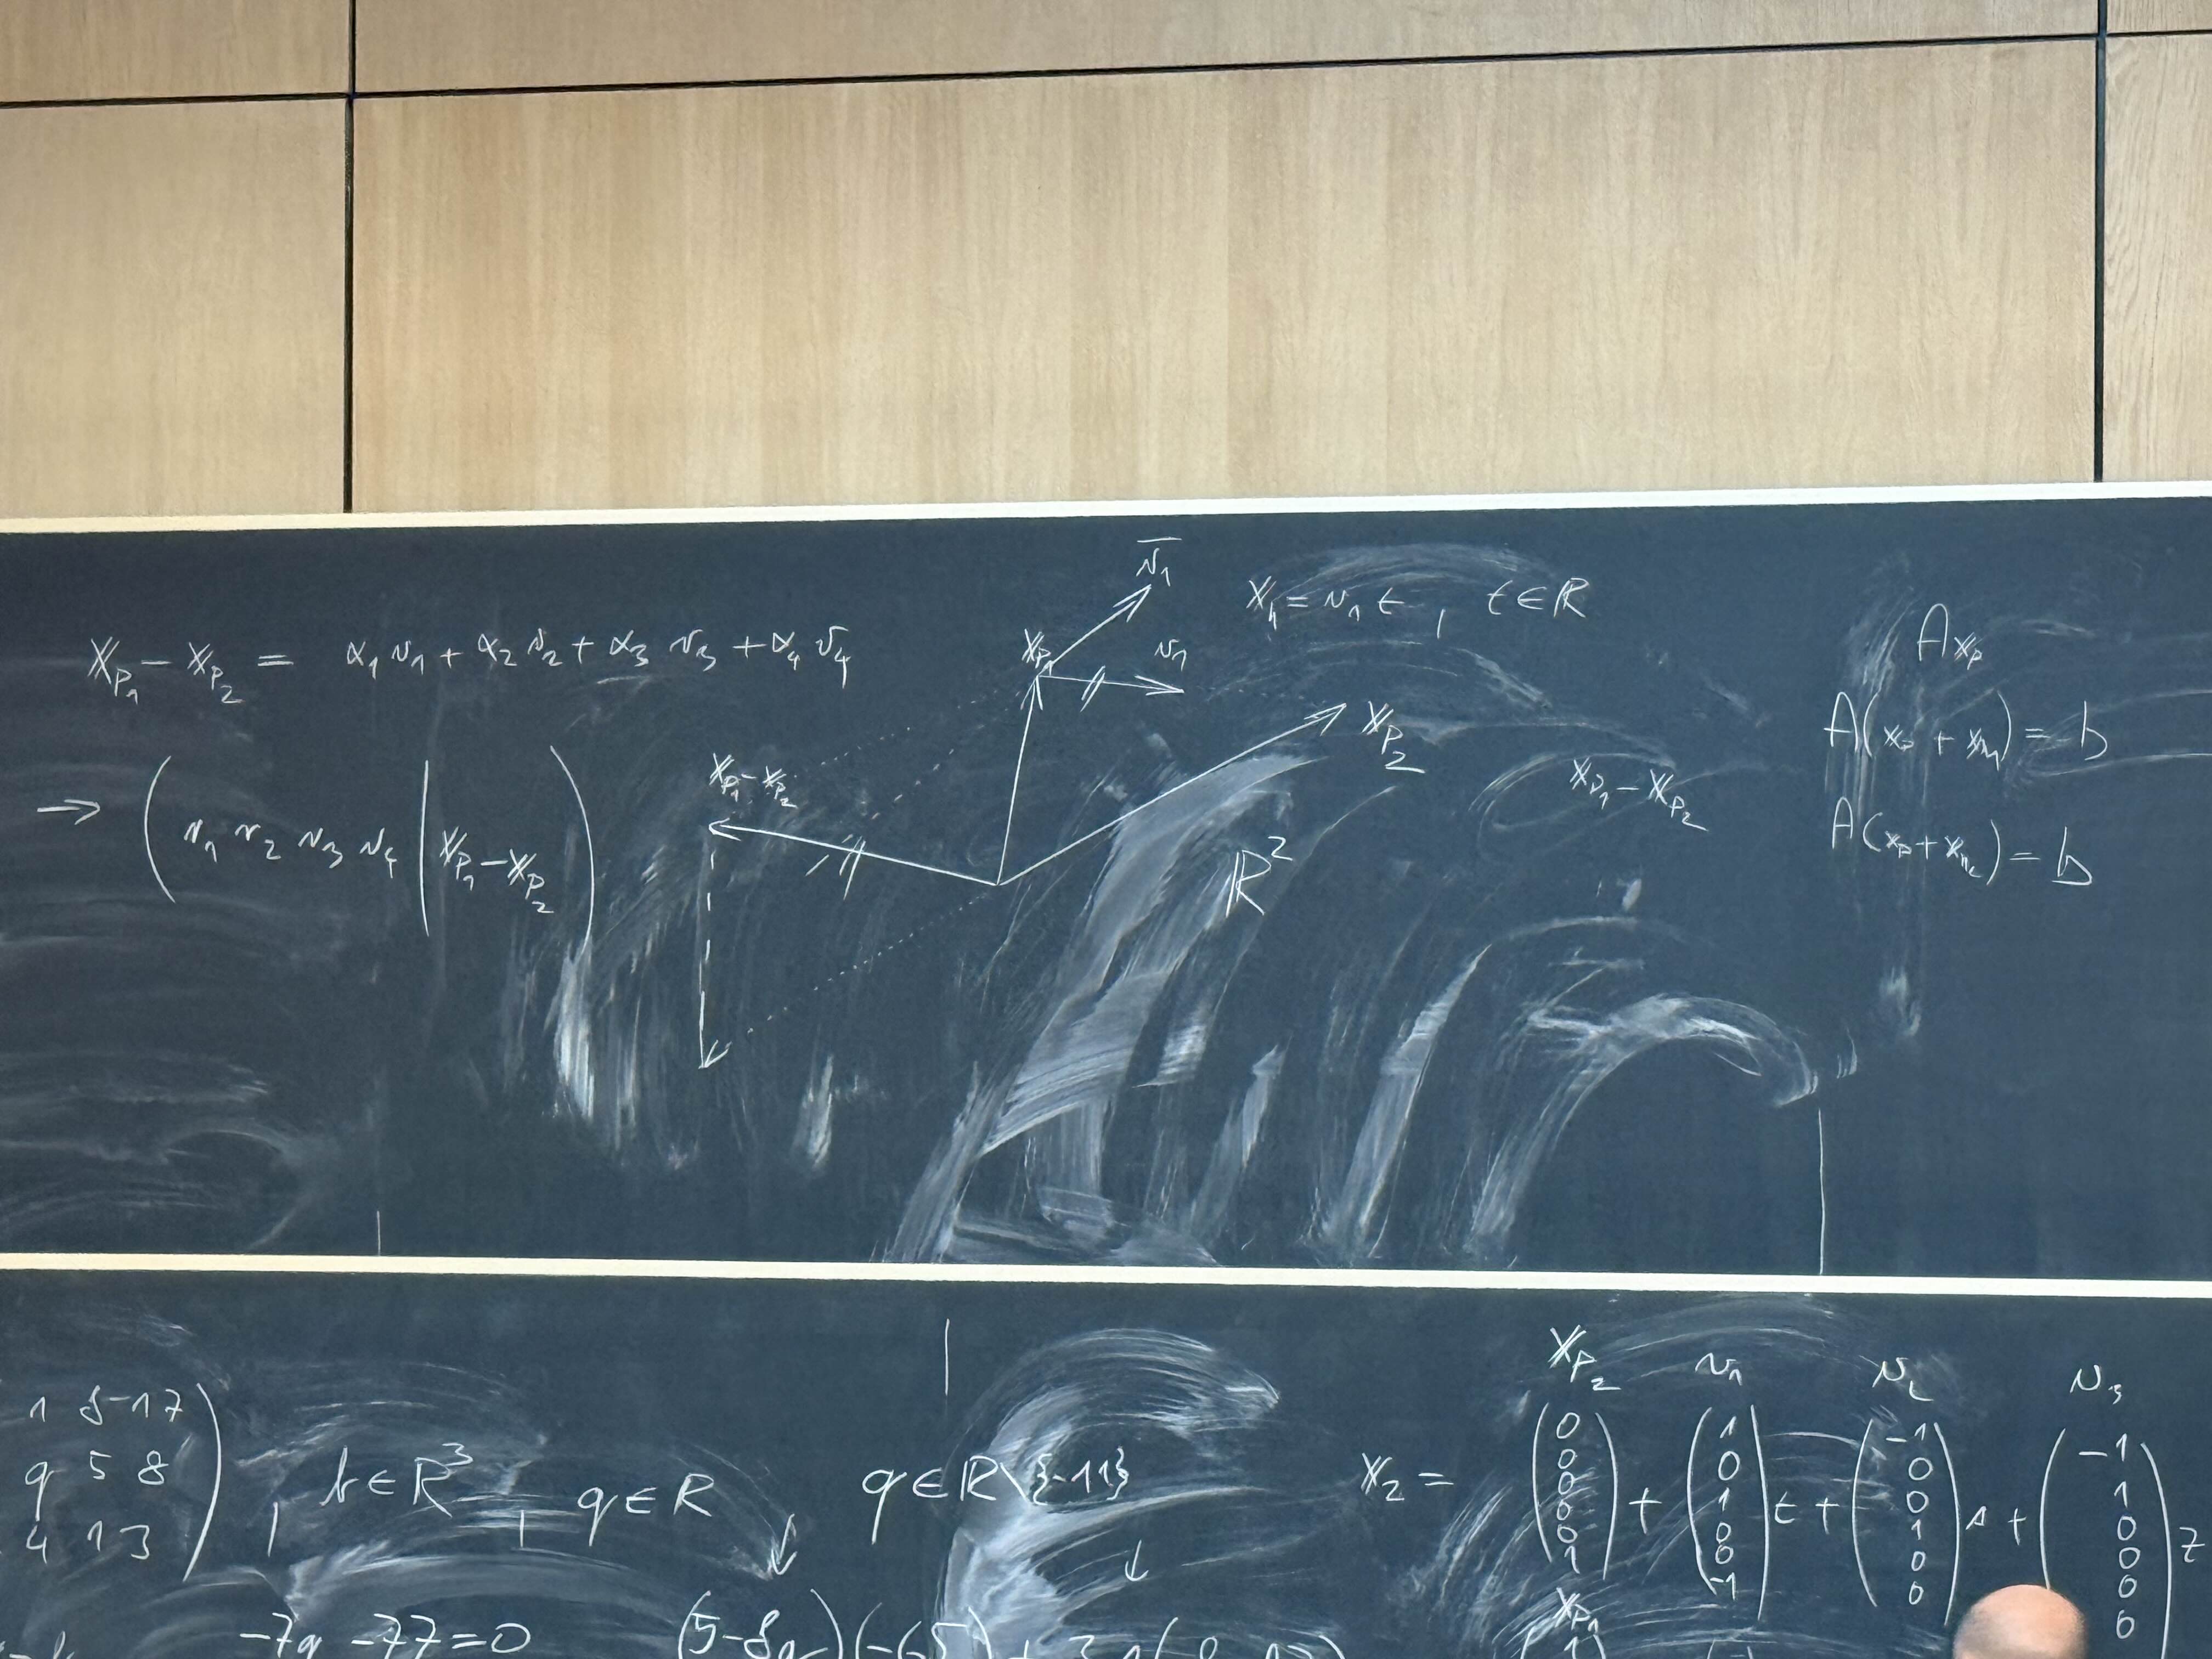 x_{p_1} - x_{p_2} = α_1 v_1 + α_2 v_2 + α_3 v_3 + α_4 v_4
→ ( v_1 v_2 v_3 v_4 | x_{p_1} - x_{p_2} )
\overline{v_1}
x_{p_1}
v_1
x_h = v_1 t , t ∈ ℝ
x_{p_2}
x_{p_1} - x_{p_2}
ℝ^2
x_{p_1} - x_{p_2}
A x_p
A(x_p + x_{h_1}) = b
A(x_p + x_{h_2}) = b
1 8 -17
9 5 8
4 1 3
, b ∈ ℝ^3 , q ∈ ℝ
q ∈ ℝ \ {-11}
↓ ↓
-7q -77 = 0
x_{p_2} v_1 v_2 v_3
x_2 = (0 0 0 0 0 1) + (1 0 1 0 0 -1) t + (-1 0 0 1 0 0) s + (-1 1 0 0 0 0) z
x_{p_1}